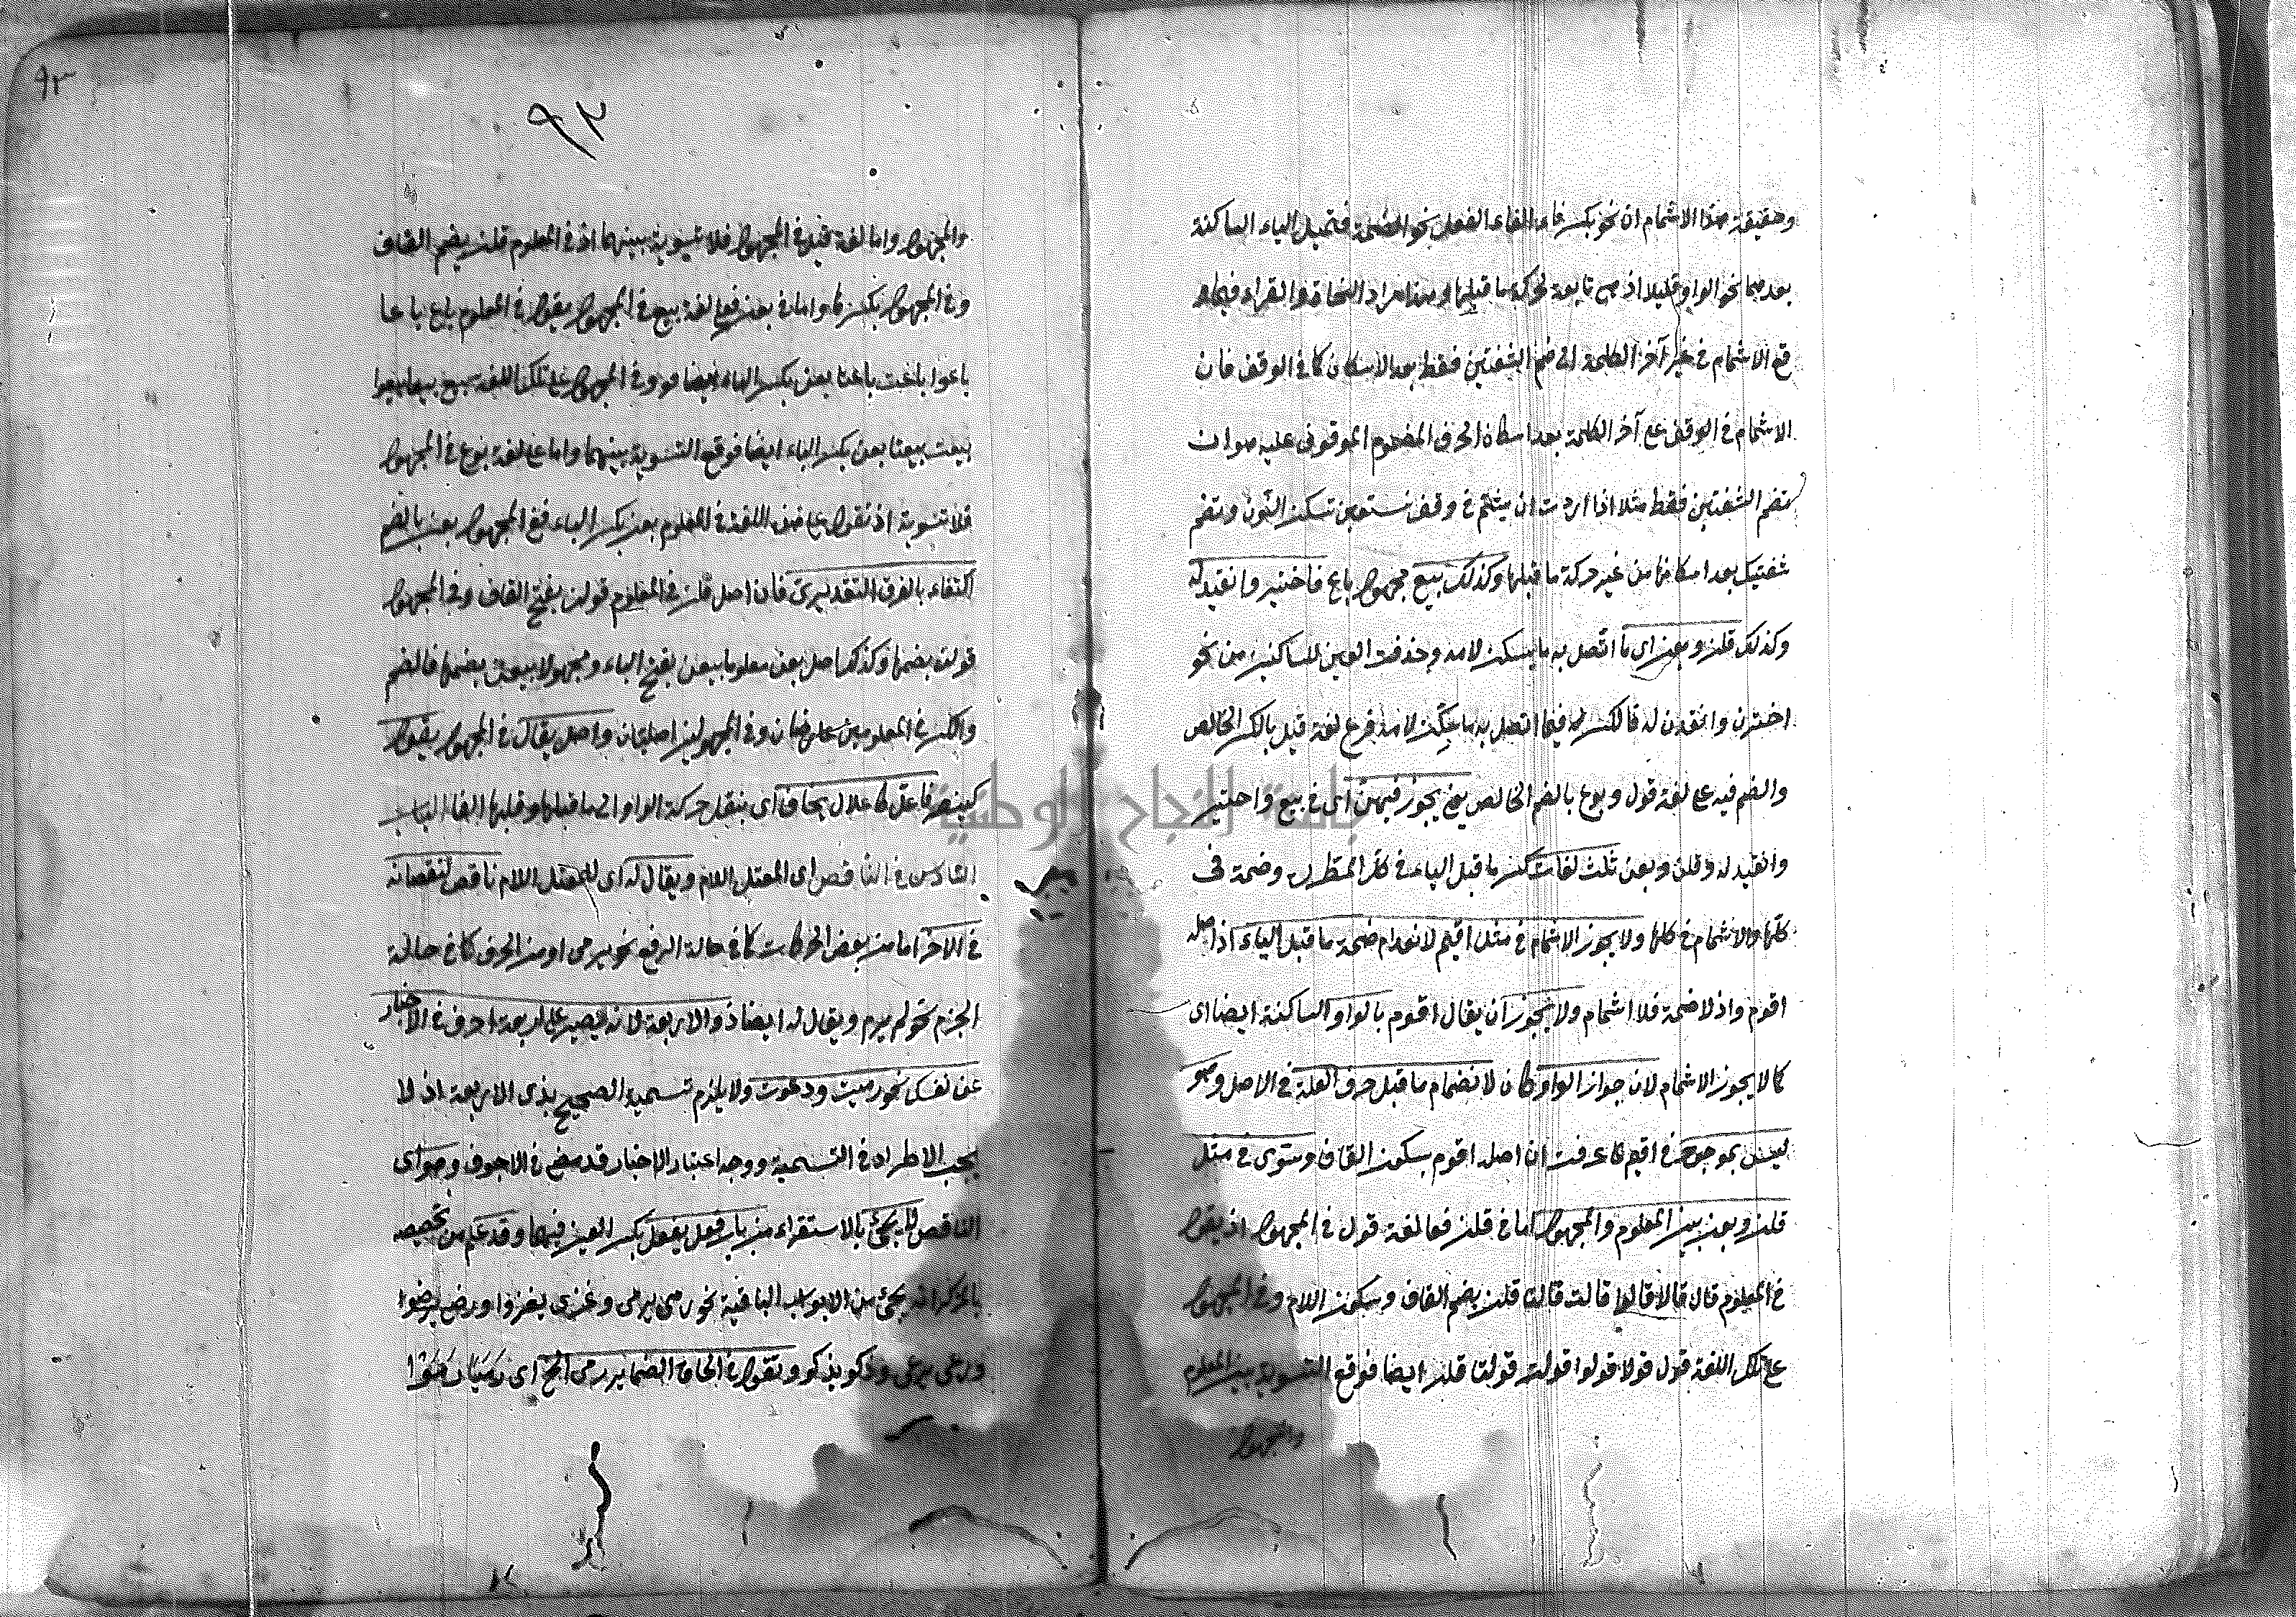 وحقيقة هذا الاشمام ان تنحو بكسر فاء الفعل نحو الضمة فتميل الياء الساكنة
بعدها نحو الواو قليلا اذ هى تابعة لحركة ما قبلها وهذا مراد النحاة والقراء
الاشمام فى غير آخر الكلمة الى ضم الشفتين فقط بعد الاسكان كما فى الوقف فان
الاشمام فى الوقف على آخر الكلمة بعد اسكان الحرف المضموم الموقوف عليه هو ان
تضم الشفتين فقط مثلا اذا اردت ان تشم فى وقف نستعين تسكن النون وتضم
شفتيك بعد اسكانها من غير حركة ما قبلها وكذلك بيع مجهول باع فاختير وانقيد له
وكذلك قلن وبعن اى ما اتصل به ما يسكن لامه وحذفت العين للساكنين من نحو
اخترن وانقدن له فالكسر فيما اتصل به ما يسكن لامه فرع لغة قيل بالكسر الخالص
والضم فيه على لغة قول وبوع بالضم الخالص يعنى يجوز فيهن اى فى بيع واختير
وانقيد له وقلن وبعن ثلث لغات كسر ما قبل الياء فى كل المنظر وضمة فى
كلها والاشمام فى كلها ولا يجوز الاشمام فى مثل اقيم لانعدام ضمة ما قبل الياء اذ اصله
اقوم واذ لا ضمة فلا اشمام ولا يجوز ان يقال اقوم بالواو الساكنة ايضا اى
كما لا يجوز الاشمام لان جواز الواو كان لانضمام ما قبل حرف العلة فى الاصل وهو
ليس بموجود فى اقيم لما عرفت ان اصله اقوم بسكون القاف وستوى فى مثل
قلن وبعن بين المعلوم والمجهول اما فى قلن فعلى لغة قول فى المجهول اذ يقول
فى المعلوم قال قالا قالوا قالت قالتا قلن بضم القاف وسكون اللام وفى المجهول
على تلك اللغة قول قولا قولوا قولت قولتا قلن ايضا فوقع التسوية بين المعلوم
والمجهول
٩٣
٩٣
والمجهول واما لغة قيل فى المجهول فلا تسوية بينهما اذ فى المعلوم قلن بضم القاف
وفى المجهول بكسرها واما فى بعن فعلى لغة بيع فى المجهول يقول فى المعلوم باع باعا
باعوا باعت باعتا بعن بكسر الباء ايضا وفى المجهول على تلك اللغة بيع بيعا بيعوا
بيعت بيعتا بعن بكسر الباء ايضا فوقع التسوية بينهما واما على لغة بوع فى المجهول
فلا تسوية اذ تقول على هذه اللغة فى المعلوم بعن بكسر الباء وفى المجهول بعن بالضم
اكتفاء بالفرق التقديرى فان اصل قلن فى المعلوم قولن بفتح القاف وفى المجهول
قولن بضمها وكذلك اصل بعن معلوما بيعن بفتح الباء ومجهولا بيعن بضمها فالضم
والكسر فى المعلومين عارضان وفى المجهولين اصليتان واصل يقال فى المجهول يقول
كينصر فاعل كاعلال يخاف اى بنقل حركة الواو الى ما قبلها وقلبها الفا الباب
السادس فى الناقص اى المعتل اللام ويقال له اى للمعتل اللام ناقص لنقصانه
فى الآخر اما من بعض الحركات كما فى حالة الرفع نحو يرمى او من الحرف كما فى حالة
الجزم نحو لم يرم ويقال له ايضا ذو الاربعة لانه يصير على اربعة احرف فى الاخبار
عن نفسك نحو رميت ودعوت ولا يلزم تسمية الصحيح بذى الاربعة اذ لا
يجب الاطراد فى التسمية ووجه اعتبار الاخبار قد مضى فى الاجوف وهو اى
الناقص لا يجئ بالاستقراء من باب فعل يفعل بكسر العين فيهما وقد علم من تخصيصه
بالذكر انه يجئ من الابواب الباقية نحو رمى يرمى وغزى يغزوا ورضى يرضوا
ورعى يرعى وذكو يذكو وتقول فى الحاق الضمائر رمى الخ اى رميا رموا